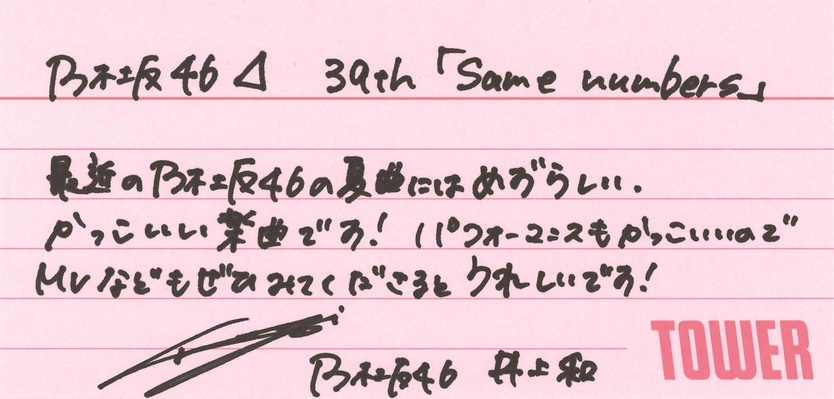 乃木坂46 ⊿ 39th「Same numbers」
最近の乃木坂46の夏曲にはめずらしい、
かっこいい楽曲です！パフォーマンスもかっこいいので
MVなどもぜひみてくださるとうれしいです！
乃木坂46 井上和
TOWER